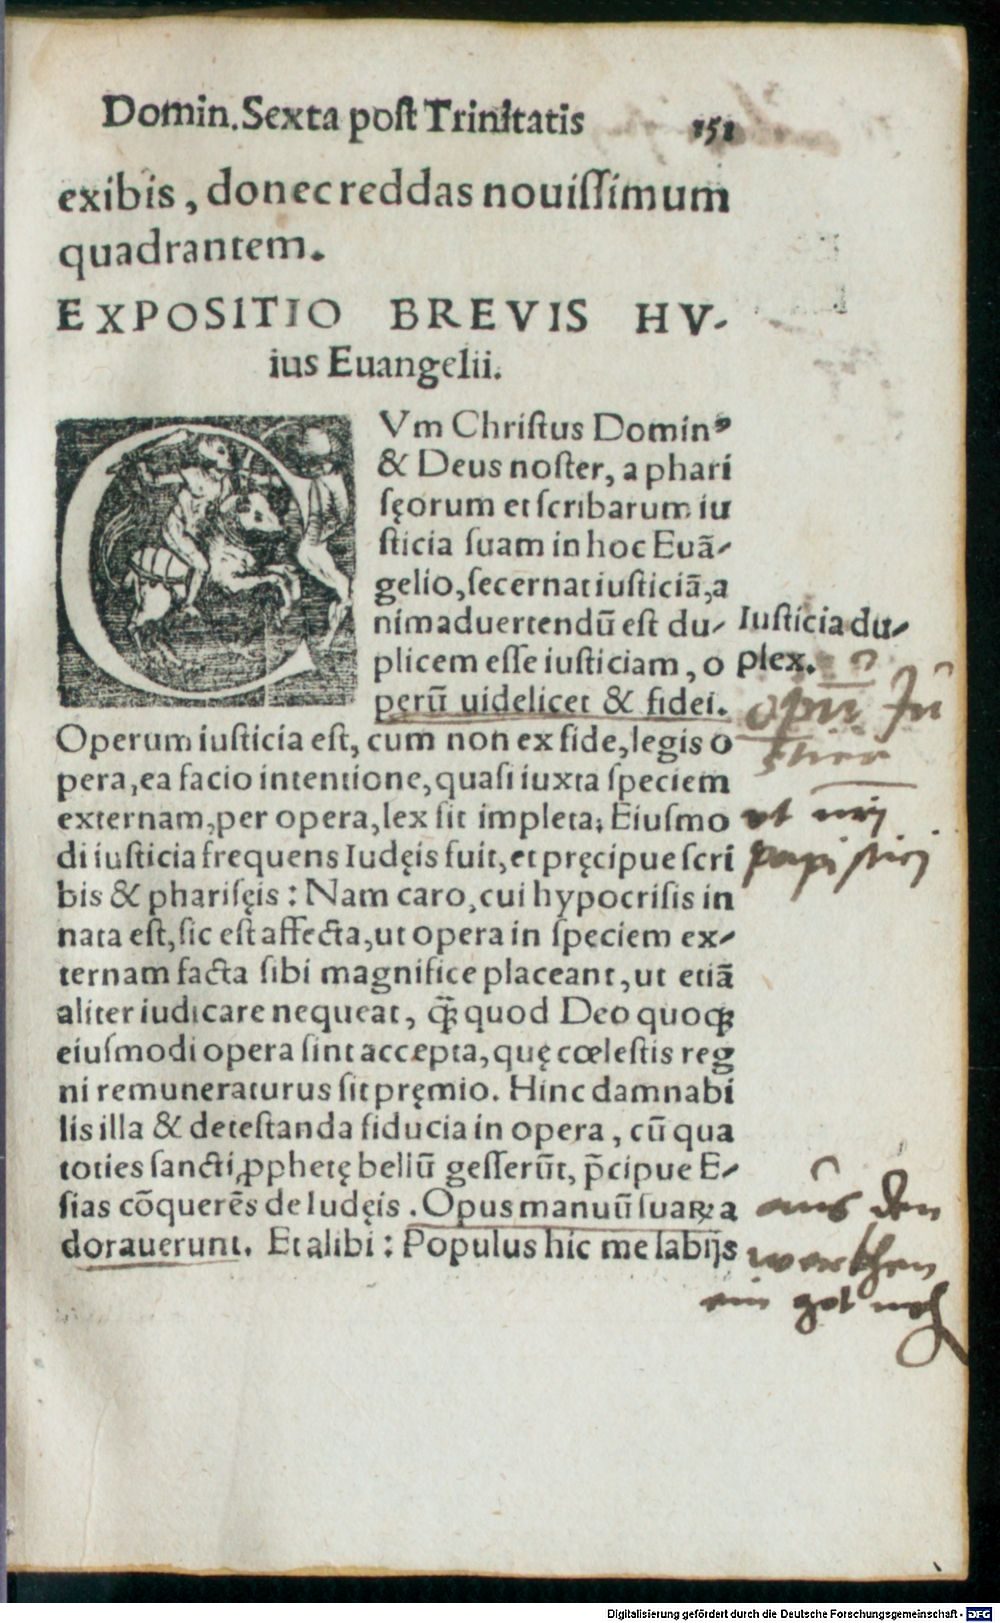 Domin. Sexta post Trinitatis 151
exibis, donec reddas nouissimum
quadrantem.
EXPOSITIO BREVIS HV-
ius Euangelii.
CVm Christus Dominꝰ
& Deus noster, a phari
sęorum et scribarum iu
sticia suam in hoc Euã-
gelio, secernat iusticiã, a
nimaduertendũ est du-
plicem esse iusticiam, o
perũ uidelicet & fidei.
Iusticia du-
plex.
Operum iusticia est, cum non ex fide, legis o
pera, ea facio intentione, quasi iuxta speciem
externam, per opera, lex sit impleta; Eiusmo
di iusticia frequens Iudęis fuit, et pręcipue scri
bis & pharisęis: Nam caro, cui hypocrisis in
nata est, sic est affecta, ut opera in speciem ex-
ternam facta sibi magnifice placeant, ut etiã
aliter iudicare nequeat, q̃ꝫ quod Deo quoqꝫ
eiusmodi opera sint accepta, quę cœlestis reg
ni remuneraturus sit pręmio. Hinc damnabi
lis illa & detestanda fiducia in opera, cũ qua
toties sancti ꝓphetę bellũ gesserũt, p̃cipue E-
sias cõquerẽs de Iudęis. Opus manuũ suaꝝ a
dorauerunt. Et alibi: Populus hic me labijs
ut
papistici
aus den
werkhen
ein got
Digitalisierung gefördert durch die Deutsche Forschungsgemeinschaft - DFG